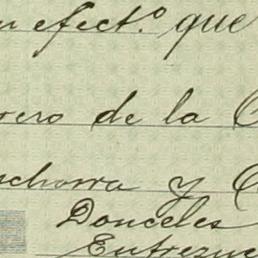 n efect.º que
rero de la C
schorra y C
Donceles
Entrezue